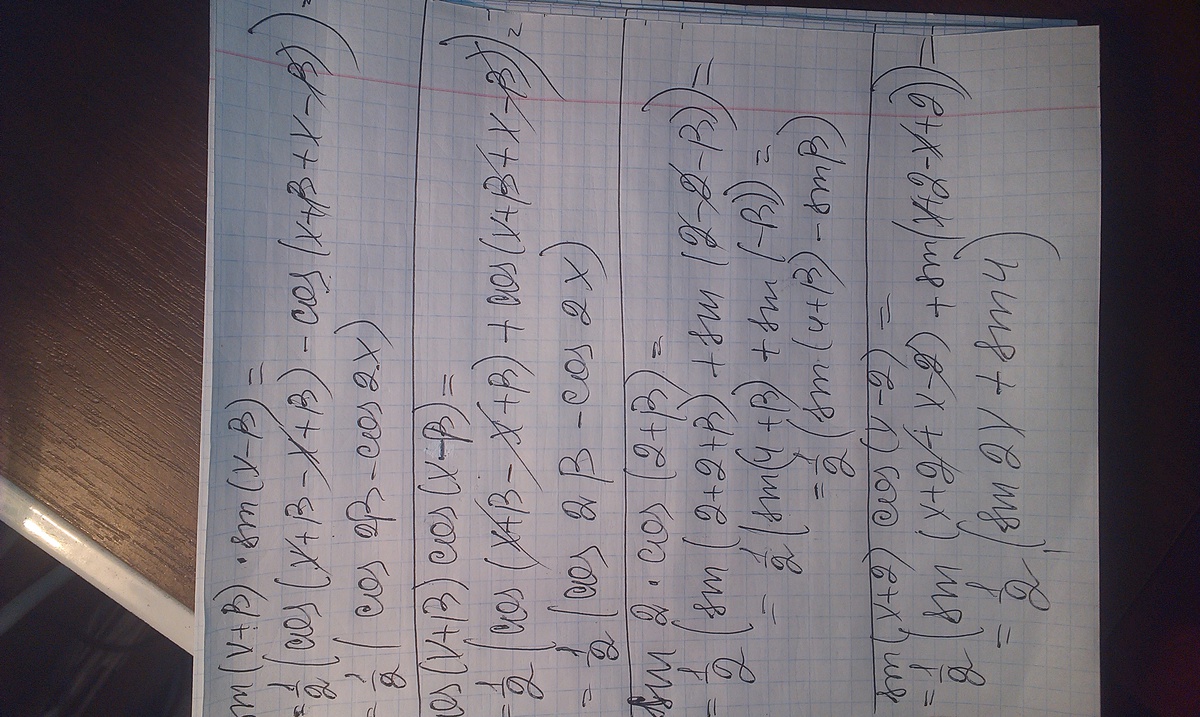 sin(x+β)·sin(x-β)=
=1/2(cos(x+β-x+β)-cos(x+β+x-β))=
=1/2(cos 2β-cos 2x)
cos(x+β)cos(x-β)=
=1/2(cos(x+β-x+β)+cos(x+β+x-β))=
=1/2(cos 2β-cos 2x)
sin 2·cos(2+β)=
=1/2(sin(2+2+β)+sin(2-2-β))=
=1/2(sin(4+β)+sin(-β))=
=1/2(sin(4+β)-sinβ)
sin(x+2)cos(x-2)=
=1/2(sin(x+2+x-2)+sin(x+2-x+2))=
=1/2(sin 2x+sin4)